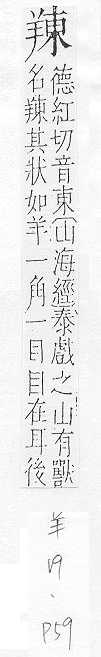 䍶
德紅切音東(山海經)泰戲之山有獸
名䍶其狀如羊一角一目目在耳後
羊
19
.
P59